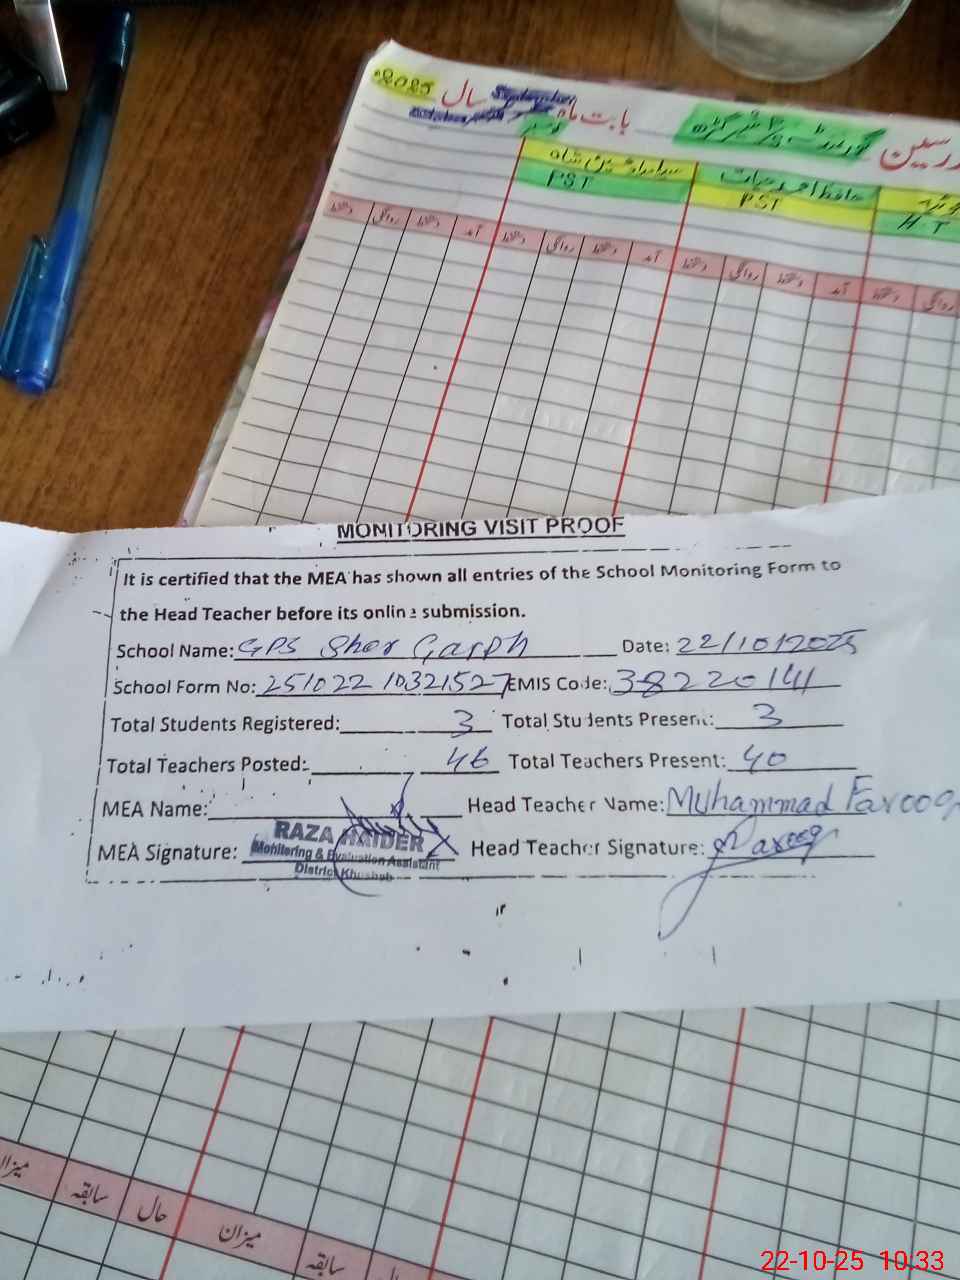 2025 سال September بابت ماہ گورنمنٹ پرائمری مدرسین
نومبر
حافظ احمد حیات
PST PST H T
دستخط روانگی دستخط آمد دستخط روانگی دستخط آمد دستخط روانگی دستخط آمد دستخط روانگی
MONITORING VISIT PROOF
It is certified that the MEA has shown all entries of the School Monitoring Form to
the Head Teacher before its online submission.
School Name: GPS Sher Garph Date: 22/10/2025
School Form No: 251022 10321527 EMIS Code: 38220141
Total Students Registered: 3 Total Students Present: 3
Total Teachers Posted: 46 Total Teachers Present: 40
MEA Name: Head Teacher Name: Muhammad Farooq
MEA Signature: Head Teacher Signature: Farooq
RAZA HAIDER
Monitoring & Evaluation Assistant
District Khushab
میزان سابقہ حال میزان سابقہ
22-10-25 10:33